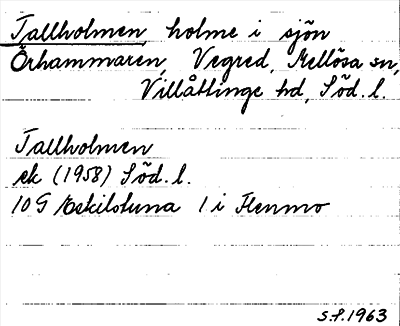 Tallholmen, holme i sjön
Örhammaren, Vegred, Mellösa sn,
Villåttinge hd, Söd. l.
Tallholmen
ek (1958) Söd. l.
10 G Eskilstuna 1 i Flenmo
S.P.1963